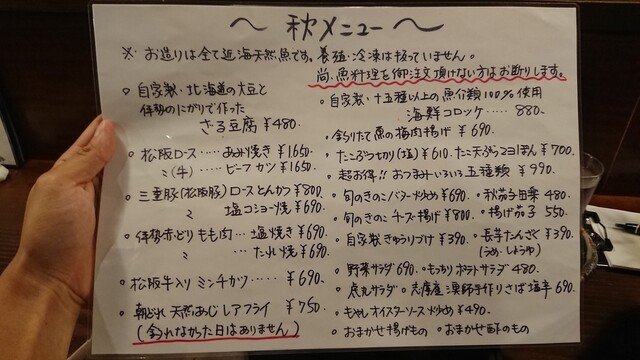 ～ 秋メニュー ～
※ お造りは全て近海天然魚です。養殖・冷凍は扱っていません。
尚、魚料理を御注文頂けない方はお断りします。
○ 自家製・北海道の大豆と
伊勢のにがりで作った
ざる豆腐 ¥480.
○ 松阪ロース…… あみ焼き ¥1.650
〃(牛)…… ビーフカツ ¥1.650
○ 三重豚(松阪豚)ロースとんかつ ¥800
〃 塩コショー焼 ¥690.
○ 伊勢赤どりもも肉… 塩焼き ¥690
〃 … たれ焼 ¥690.
○ 松阪牛入りミンチカツ…… ¥690.
○ 朝どれ 天然あじレアフライ ¥750.
(釣れなかった日はありません)
○ 自家製・十五種以上の魚介類100%使用
海鮮コロッケ…… 880.
○ 釣りたて魚の梅肉揚げ ¥690.
○ たこぶつ切り(塩) ¥610. たこ天ぷらマヨぽん ¥700
○ 超お得!! おつまみいろいろ五種類 ¥990
○ 旬のきのこバター炒め ¥690. ○ 秋茄子田楽 480.
○ 旬のきのこチーズ揚げ ¥800 ○ 揚げ茄子 550.
○ 自家製きゅうりづけ ¥390. ○ 長芋たんざく ¥390
(うめ・しょうゆ)
○ 野菜サラダ 690. ○ もっちりポテトサラダ 480.
○ 虎丸サラダ ○ 志摩産漁師手作りさば塩辛 690.
○ もやしオイスターソース炒め ¥490.
○ おまかせ揚げもの ○ おまかせ酢のもの